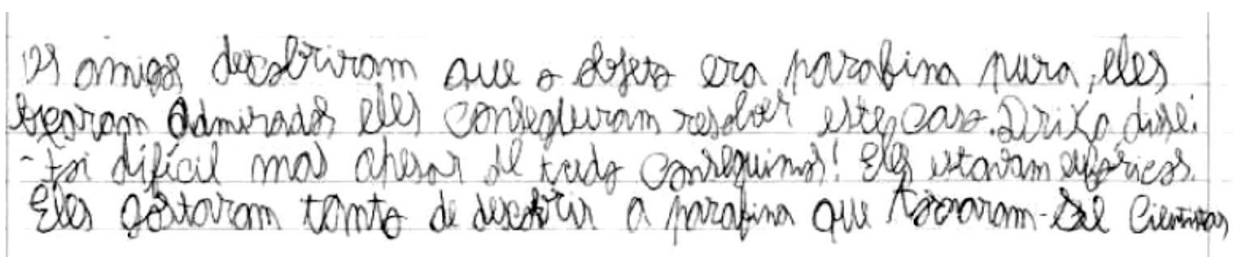 Os amigos descobriram que o objeto era parafina pura, eles
ficaram admirados eles conseguiram resolver este caso. Drika disse:
- foi difícil mas apesar de tudo conseguimos! Eles estavam eufóricos.
Eles gostaram tanto de descobrir a parafina que tornaram-se cientistas